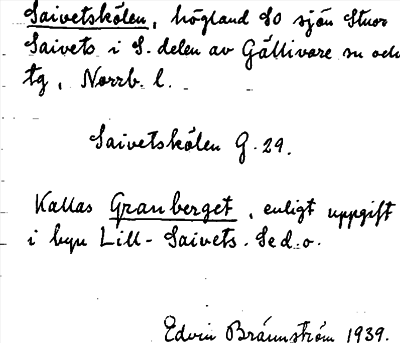 Saivetskölen, högland SO sjön Stuor
Saivets i S. delen av Gällivare sn och
tg, Norrb. l.
Saivetskölen G. 29.
Kallas Granberget, enligt uppgift
i byn Lill-Saivets. Se d. o.
Edvin Brännström 1939.